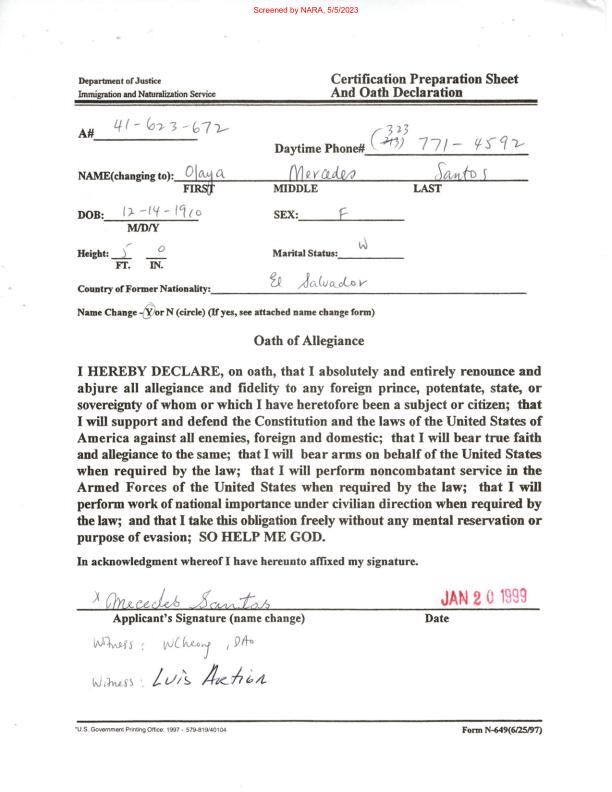 Screened by NARA, 5/5/2023
Department of Justice
Immigration and Naturalization Service
Certification Preparation Sheet
And Oath Declaration
A# 41-623-672
Daytime Phone# (323 771-4592
(213)
NAME(changing to): Olaya Mercedes Santos
FIRST MIDDLE LAST
DOB: 12-14-1910 SEX: F
M/D/Y
Height: 5 0 Marital Status: W
FT. IN.
Country of Former Nationality: El Salvador
Name Change - Y or N (circle) (If yes, see attached name change form)
Oath of Allegiance
I HEREBY DECLARE, on oath, that I absolutely and entirely renounce and
abjure all allegiance and fidelity to any foreign prince, potentate, state, or
sovereignty of whom or which I have heretofore been a subject or citizen; that
I will support and defend the Constitution and the laws of the United States of
America against all enemies, foreign and domestic; that I will bear true faith
and allegiance to the same; that I will bear arms on behalf of the United States
when required by the law; that I will perform noncombatant service in the
Armed Forces of the United States when required by the law; that I will
perform work of national importance under civilian direction when required by
the law; and that I take this obligation freely without any mental reservation or
purpose of evasion; SO HELP ME GOD.
In acknowledgment whereof I have hereunto affixed my signature.
x Mecedes Santos JAN 20 1999
Applicant's Signature (name change) Date
Witness: WCheong, DAO
Witness: Luis
*U.S. Government Printing Office: 1997 - 579-819/40104 Form N-649(6/25/97)